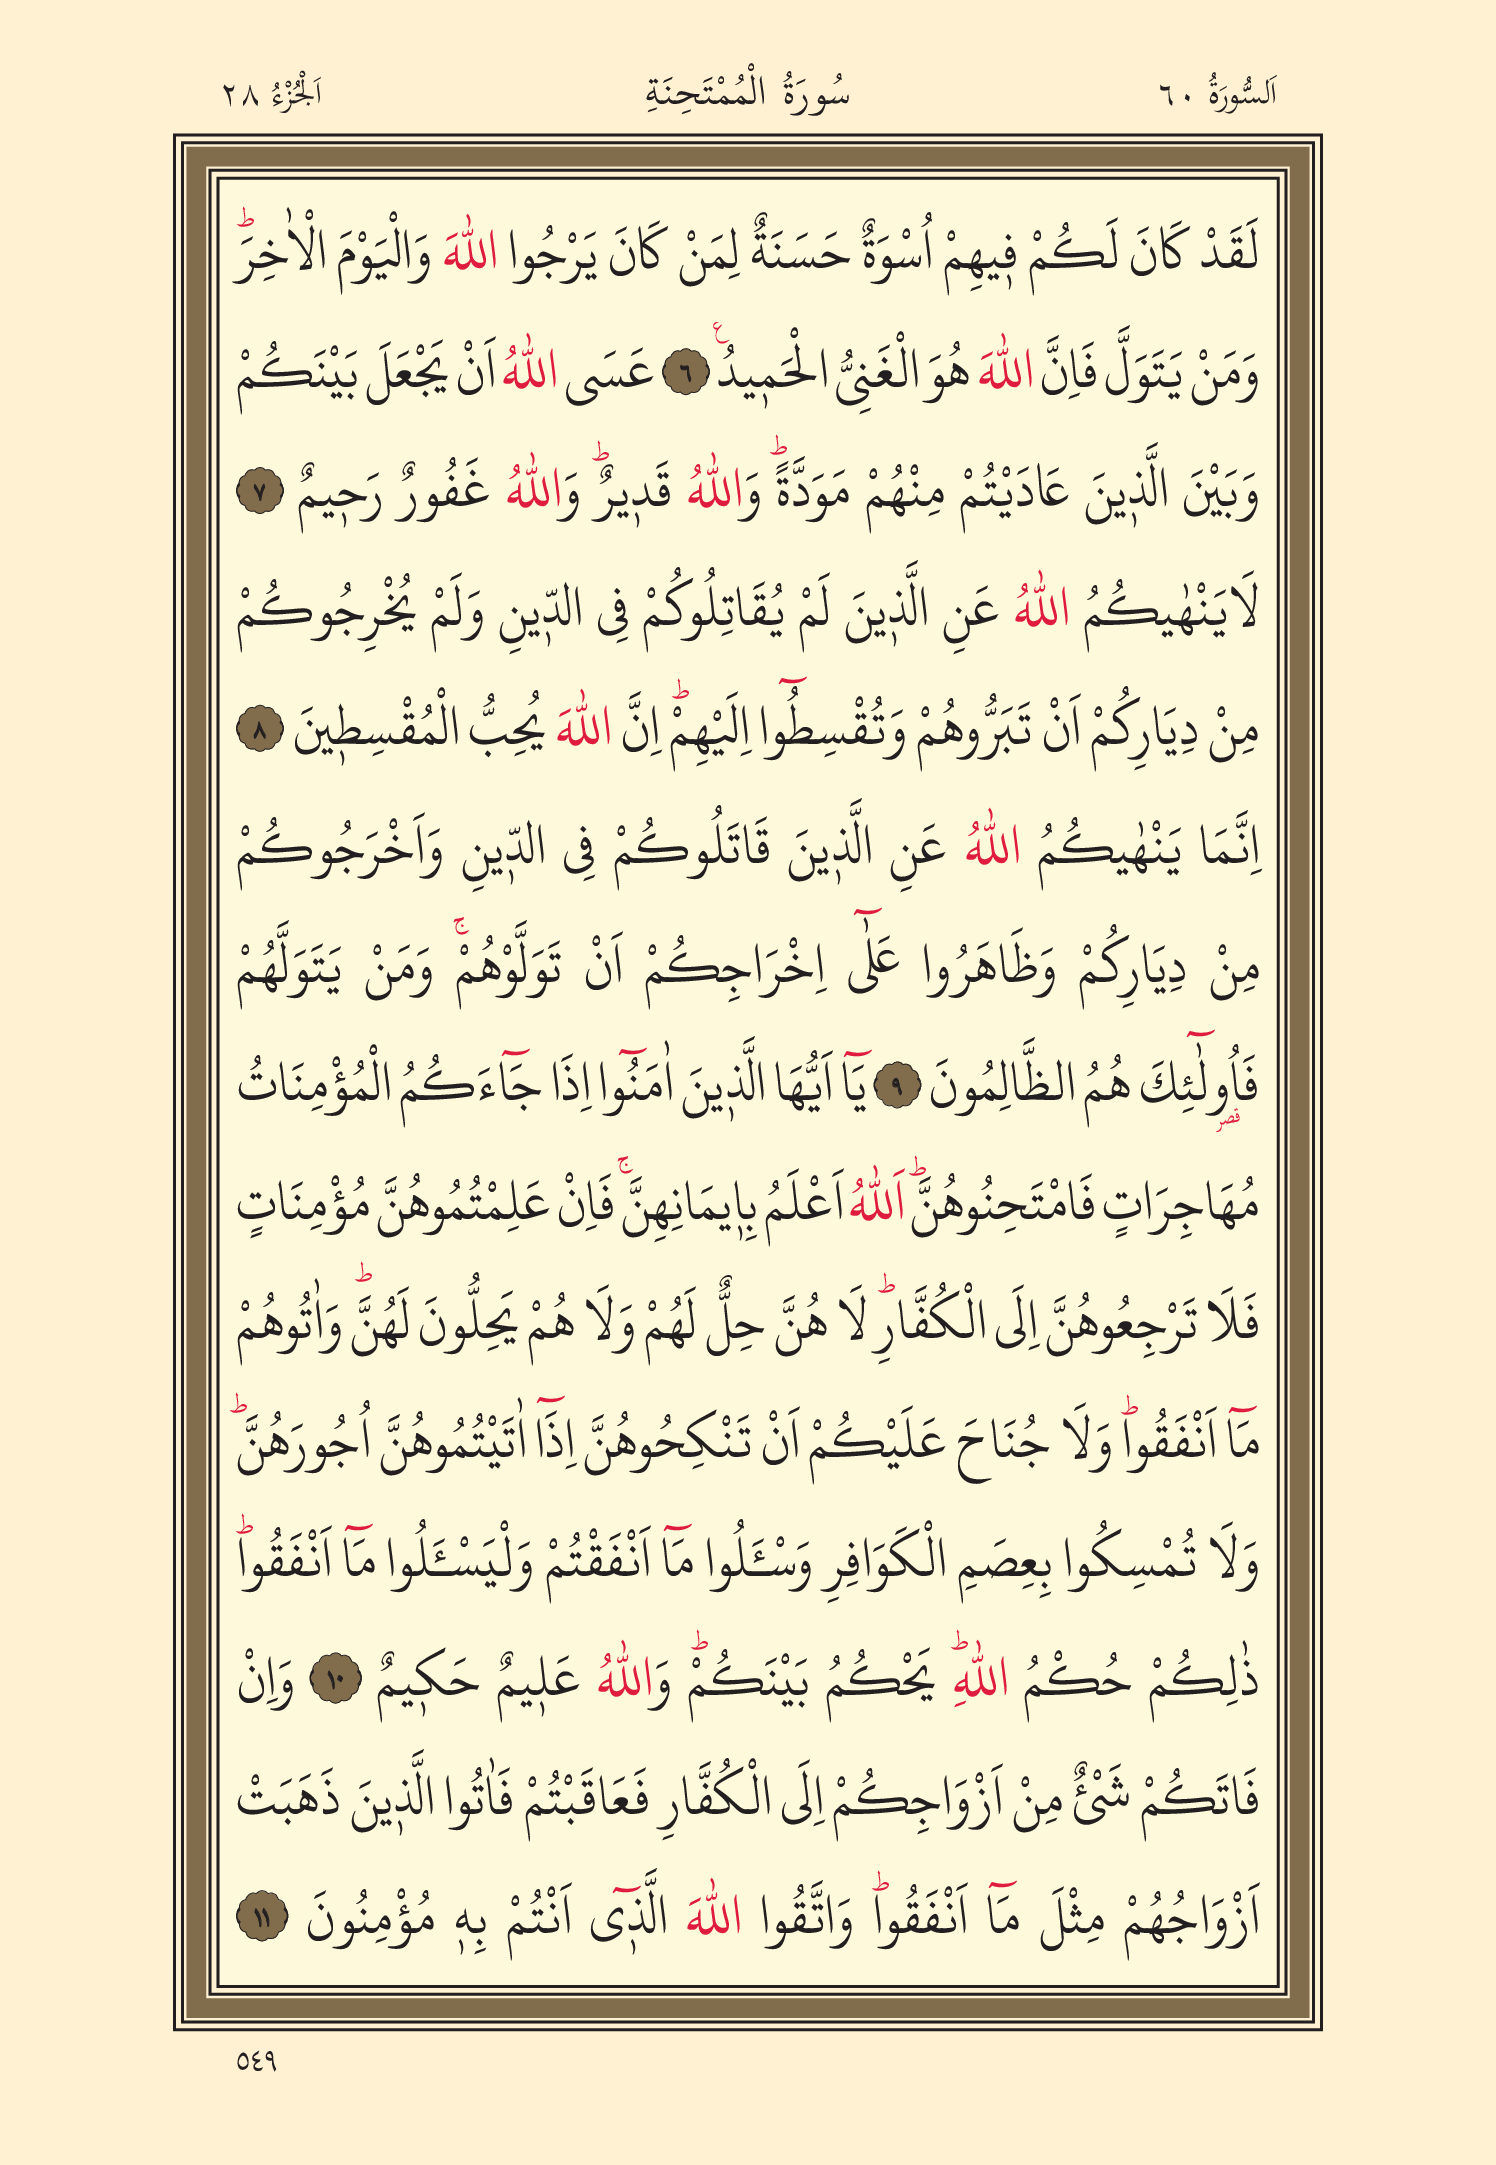 اَلسُّورَةُ ٦٠ سُورَةُ الْمُمْتَحِنَةِ اَلْجُزْءُ ٢٨
لَقَدْ كَانَ لَكُمْ ف۪يهِمْ اُسْوَةٌ حَسَنَةٌ لِمَنْ كَانَ يَرْجُوا اللّٰهَ وَالْيَوْمَ الْاٰخِرَۜ
وَمَنْ يَتَوَلَّ فَاِنَّ اللّٰهَ هُوَ الْغَنِيُّ الْحَم۪يدُ۟ ٦ عَسَى اللّٰهُ اَنْ يَجْعَلَ بَيْنَكُمْ
وَبَيْنَ الَّذ۪ينَ عَادَيْتُمْ مِنْهُمْ مَوَدَّةًۜ وَاللّٰهُ قَد۪يرٌۜ وَاللّٰهُ غَفُورٌ رَح۪يمٌ ٧
لَا يَنْهٰيكُمُ اللّٰهُ عَنِ الَّذ۪ينَ لَمْ يُقَاتِلُوكُمْ فِي الدّ۪ينِ وَلَمْ يُخْرِجُوكُمْ
مِنْ دِيَارِكُمْ اَنْ تَبَرُّوهُمْ وَتُقْسِطُٓوا اِلَيْهِمْۜ اِنَّ اللّٰهَ يُحِبُّ الْمُقْسِط۪ينَ ٨
اِنَّمَا يَنْهٰيكُمُ اللّٰهُ عَنِ الَّذ۪ينَ قَاتَلُوكُمْ فِي الدّ۪ينِ وَاَخْرَجُوكُمْ
مِنْ دِيَارِكُمْ وَظَاهَرُوا عَلٰٓى اِخْرَاجِكُمْ اَنْ تَوَلَّوْهُمْۚ وَمَنْ يَتَوَلَّهُمْ
فَاُو۬لٰٓئِكَ هُمُ الظَّالِمُونَ ٩ يَٓا اَيُّهَا الَّذ۪ينَ اٰمَنُٓوا اِذَا جَٓاءَكُمُ الْمُؤْمِنَاتُ
مُهَاجِرَاتٍ فَامْتَحِنُوهُنَّۜ اَللّٰهُ اَعْلَمُ بِا۪يمَانِهِنَّۚ فَاِنْ عَلِمْتُمُوهُنَّ مُؤْمِنَاتٍ
فَلَا تَرْجِعُوهُنَّ اِلَى الْكُفَّارِۜ لَا هُنَّ حِلٌّ لَهُمْ وَلَا هُمْ يَحِلُّونَ لَهُنَّۜ وَاٰتُوهُمْ
مَٓا اَنْفَقُواۜ وَلَا جُنَاحَ عَلَيْكُمْ اَنْ تَنْكِحُوهُنَّ اِذَٓا اٰتَيْتُمُوهُنَّ اُجُورَهُنَّۜ
وَلَا تُمْسِكُوا بِعِصَمِ الْكَوَافِرِ وَسْـَٔلُوا مَٓا اَنْفَقْتُمْ وَلْيَسْـَٔلُوا مَٓا اَنْفَقُواۜ
ذٰلِكُمْ حُكْمُ اللّٰهِۜ يَحْكُمُ بَيْنَكُمْۜ وَاللّٰهُ عَل۪يمٌ حَك۪يمٌ ١٠ وَاِنْ
فَاتَكُمْ شَيْءٌ مِنْ اَزْوَاجِكُمْ اِلَى الْكُفَّارِ فَعَاقَبْتُمْ فَاٰتُوا الَّذ۪ينَ ذَهَبَتْ
اَزْوَاجُهُمْ مِثْلَ مَٓا اَنْفَقُواۜ وَاتَّقُوا اللّٰهَ الَّذ۪ٓي اَنْتُمْ بِه۪ مُؤْمِنُونَ ١١
٥٤٩